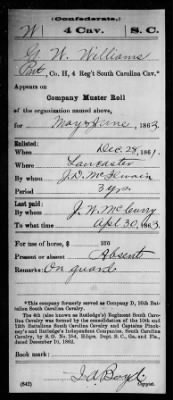 (Confederate.)
W 4 Cav. S. C.
G. W. Williams
Pvt, Co. H, 4 Reg't South Carolina Cav.*
Appears on
Company Muster Roll
of the organization named above,
for May & June, 1863.
Enlisted:
When Dec. 28, 1861.
Where Lancaster
By whom J. D. McIlwain
Period 3 yrs
Last paid:
By whom J. W. McCurry
To what time Apl. 30, 1863.
For use of horse, $
Present or absent Absent
Remarks: On guard
*This company formerly served as Company D, 10th Battalion South Carolina Cavalry.
The 4th (also known as Rutledge's) Regiment South Carolina Cavalry was formed by the consolidation of the 10th and 12th Battalions South Carolina Cavalry and Captains Pinckney's and Rutledge's Independent Companies, South Carolina Cavalry, by S. O. No. 254, Hdqrs. Dept. S. C., Ga. and Fla., dated December 16, 1862.
Book mark:
(642) J. A. Boyd
Copyist.